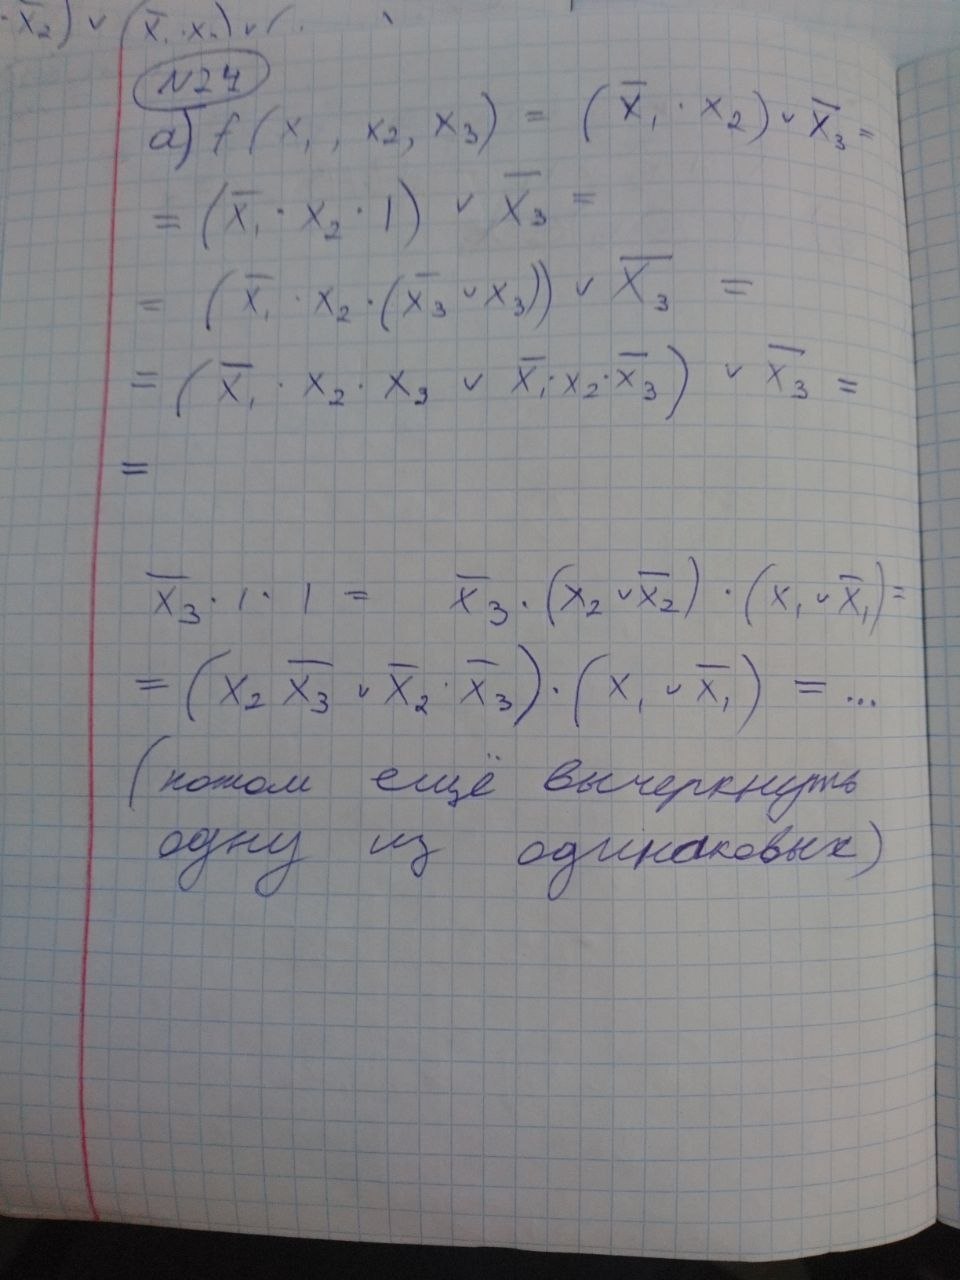 x̅₂) ∨ (x̅₁·x₂) ∨ (
N24
a) f(x₁, x₂, x₃) = (x̅₁ · x₂) ∨ x̅₃ =
= (x̅₁ · x₂ · 1) ∨ x̅₃ =
= (x̅₁ · x₂ · (x̅₃ ∨ x₃)) ∨ x̅₃ =
= (x̅₁ · x₂ · x₃ ∨ x̅₁·x₂·x̅₃) ∨ x̅₃ =
=
x̅₃ · 1 · 1 = x̅₃ · (x₂ ∨ x̅₂) · (x₁ ∨ x̅₁) =
= (x₂ x̅₃ ∨ x̅₂ · x̅₃) · (x₁ ∨ x̅₁) = ...
(потом ещё вычеркнуть
одну из одинаковых)